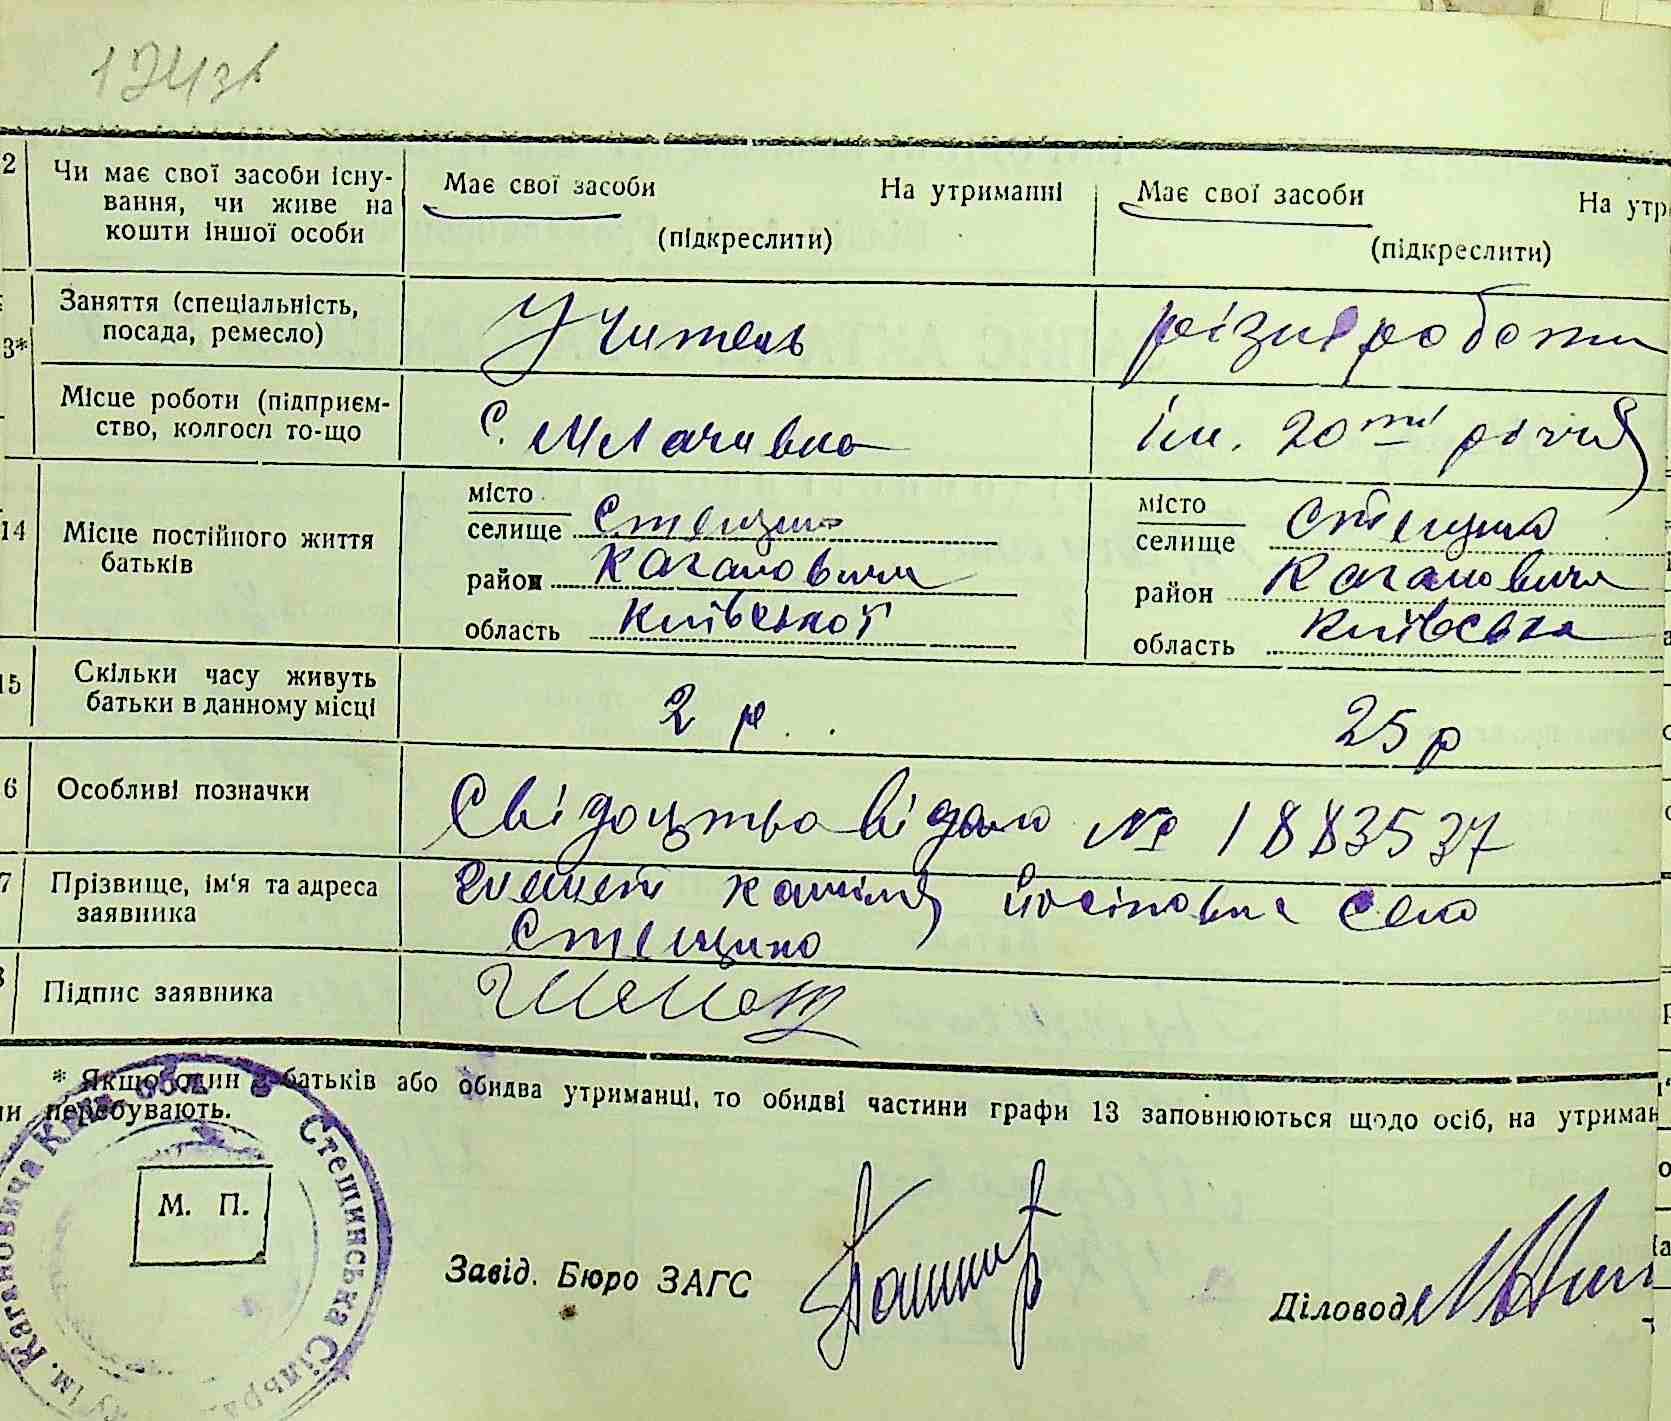 124зв
2 Чи має свої засоби існу- Має свої засоби На утриманні Має свої засоби На утри
вання, чи живе на
кошти іншої особи (підкреслити) (підкреслити)
Заняття (спеціальність, Учитель різні роботи
3* посада, ремесло)
Місце роботи (підприєм- с. Млачивка ім. 20ті річчя
ство, колгосп то-що
місто місто
14 Місце постійного життя селище Стещина селище Стещина
батьків район Кагановича район Кагановича
область Київської область Київська
15 Скільки часу живуть 2 р. 25 р
батьки в данному місці
6 Особливі позначки Свідоцтво відано № 1883537
7 Прізвище, ім‘я та адреса село
заявника Стещина
Підпис заявника
* Якщо один з батьків або обидва утриманці, то обидві частини графи 13 заповнюються щодо осіб, на утриман
ни перебувають.
Стещинська Сільра
ім. Кагановича Київ. обл.
М. П.
Завід. Бюро ЗАГС
Діловод